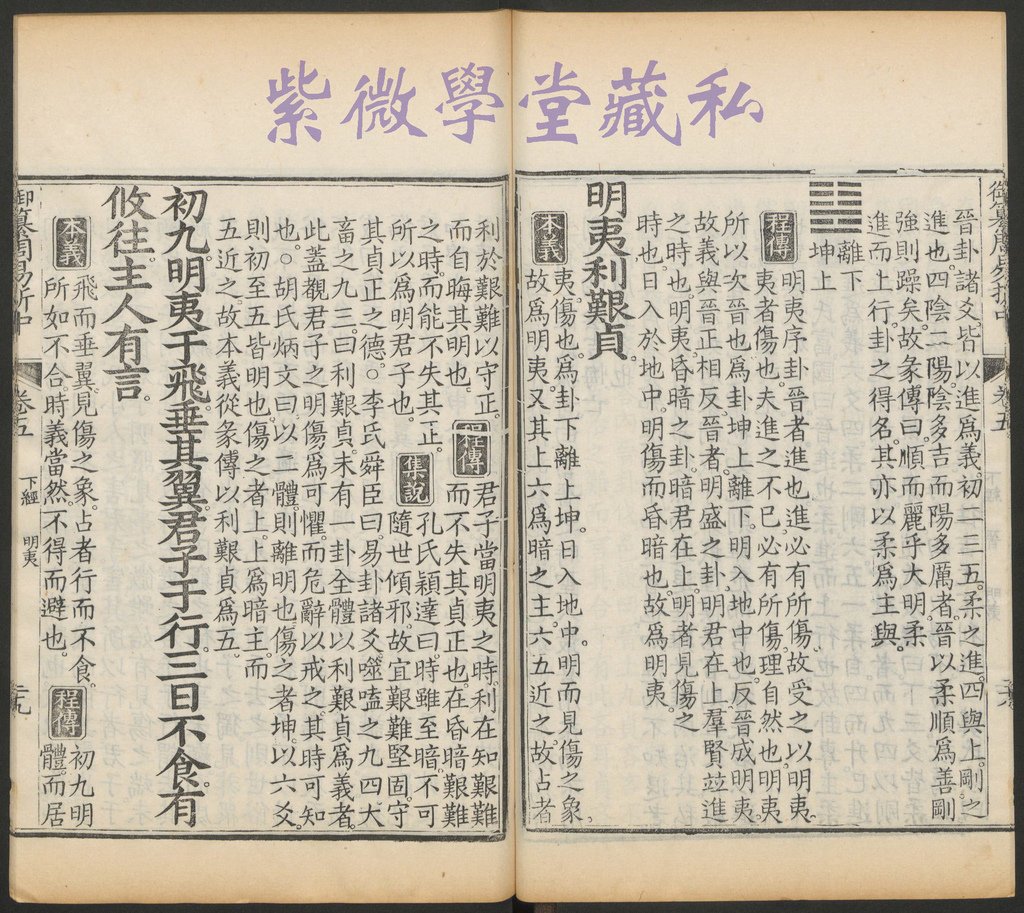 紫微學堂藏私
御纂周易折中 卷五
晉卦諸爻皆以進爲義初二三五柔之進四與上剛之
進也四陰二陽陰多吉而陽多厲者晉以柔順爲善剛
強則躁矣故彖傳曰順而麗乎大明柔
進而上行卦之得名其亦以柔爲主與
離下
坤上
程傳 明夷序卦晉者進也進必有所傷故受之以明夷
夷者傷也夫進之不已必有所傷理自然也明夷
所以次晉也爲卦坤上離下明入地中也反晉成明夷
故義與晉正相反晉者明盛之卦明君在上羣賢竝進
之時也明夷昏暗之卦暗君在上明者見傷之
時也日入於地中明傷而昏暗也故爲明夷
明夷利艱貞
本義 夷傷也爲卦下離上坤日入地中明而見傷之象
故爲明夷又其上六爲暗之主六五近之故占者
利於艱難以守正
而自晦其明也 程傳 君子當明夷之時利在知艱難
而不失其貞正也在昏暗艱難
之時而能不失其正
所以爲明君子也 集說 孔氏穎達曰時雖至暗不可
隨世傾邪故宜艱難堅固守
其貞正之德○李氏舜臣曰易卦諸爻噬嗑之九四大
畜之九三曰利艱貞未有一卦全體以利艱貞爲義者
此蓋觀君子之明傷爲可懼而危辭以戒之其時可知
也○胡氏炳文曰以二體則離明也傷之者坤以六爻
則初至五皆明也傷之者上上爲暗主而
五近之故本義從彖傳以利艱貞爲五
初九明夷于飛垂其翼君子于行三日不食有
攸往主人有言
本義 飛而垂翼見傷之象占者行而不食
所如不合時義當然不得而避也 程傳 初九明
體而居
御纂周易折中 卷五 下經 明夷 三九